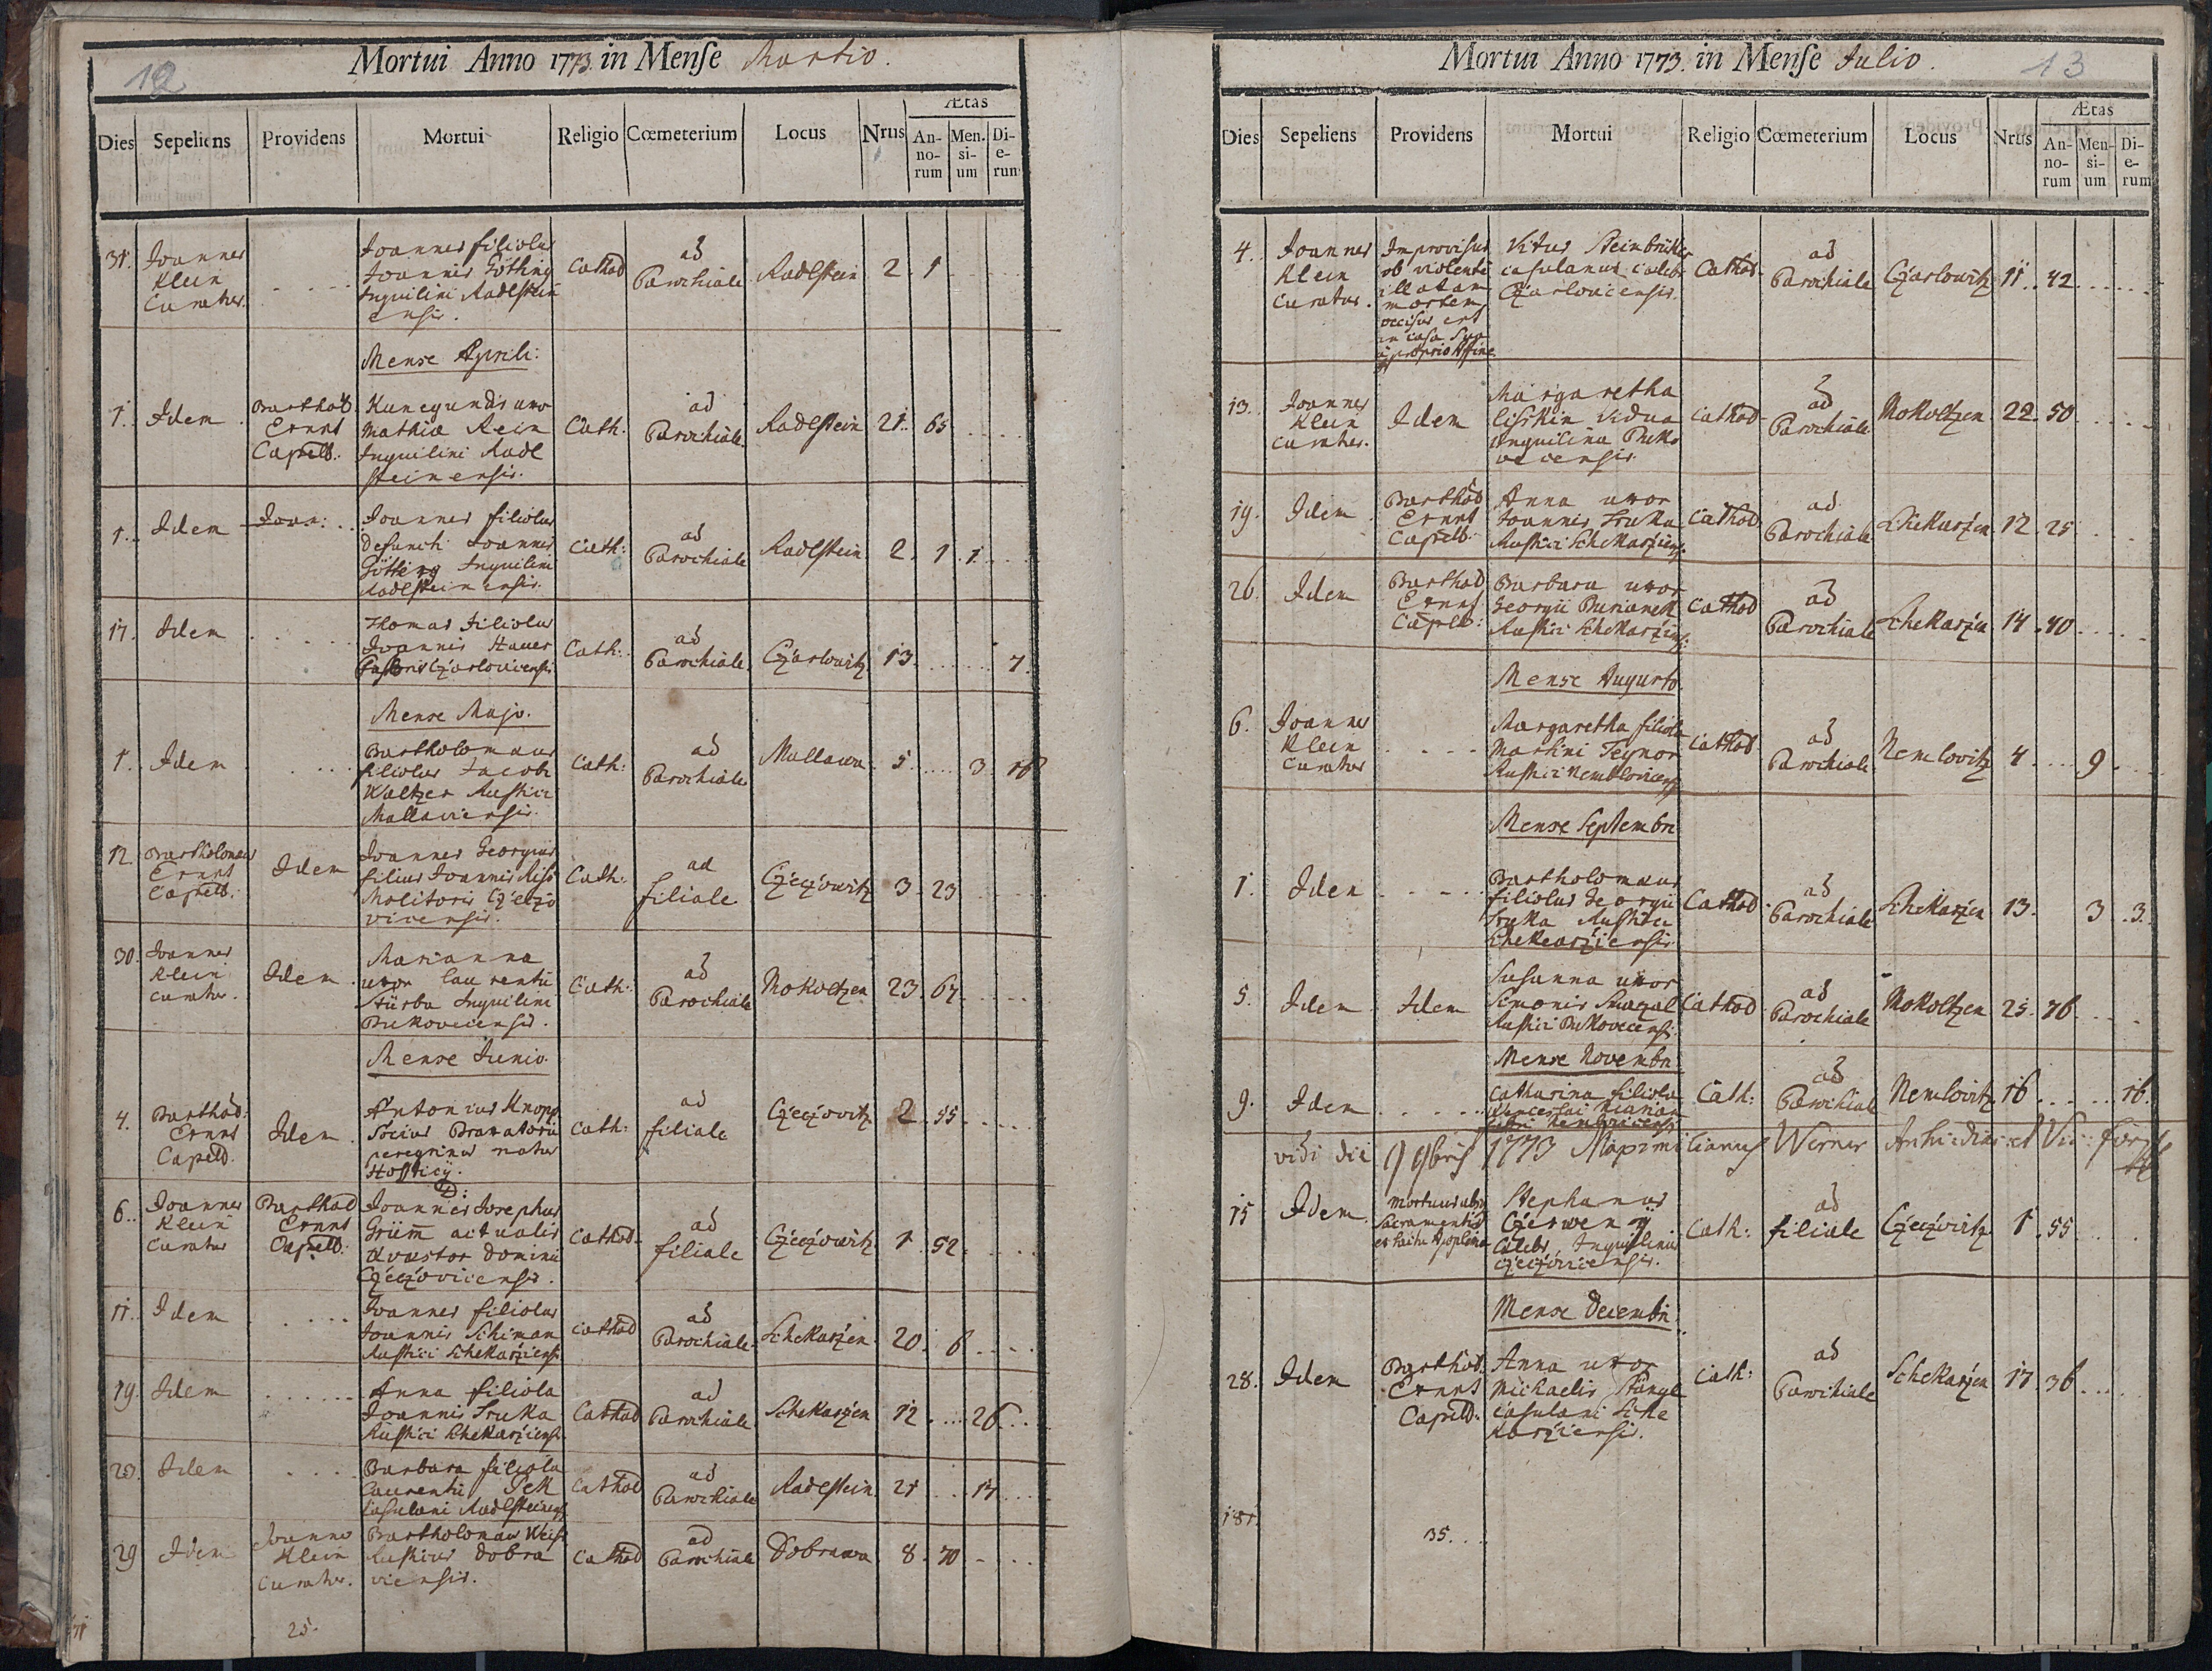 12
Mortui Anno 1773. in Mense Martio.
Dies Sepeliens Providens Mortui Religio Cœmeterium Locus Nrus Ætas
An-no-rum Men-si-um Di-e-rum
31. Joannes Klein Curatus. Joannes filiolus Joannis Götting Inquilini Radlstein ensis. Cathol ad Parochiale Radlstein 2. 1
Mense Aprili:
1. Idem Barthol Ernst Capell: Kunegundis uxor Mathiæ Rein Inquilini Radl steinensis. Cath: ad Parochiale Radlstein 21. 65
1. Idem Joan: Joannes filiolus defuncti Joannis Götting Inquilini Radlsteinensis. Cath: ad Parochiale Radlstein 2. 1. 1.
17. Idem Thomas filiolus Joannis Hauer Pastoris Czarlovicensis Cath: ad Parochiale Czarlowitz 13. 7.
Mense Majo.
1. Idem Bartholomæus filiolus Jacobi Kaltzer Rustici Mallaviensis. Cath: ad Parochiale Mallawa 5. 3. 16
12. Bartholomæus Ernst Capell: Idem Joannes Georgius filius Joannis Molitoris Czeczo vicensis. Cath: ad filiale Czeczowitz 3. 23
30. Joannes Klein Curatus. Idem Marianna uxor Laurentii Stürba Inquilini Bukovecensis. Cath: ad Parochiale Mokoltzen 23. 67.
Mense Junio.
4. Barthol: Ernst Capell. Idem. Antonius Knopp Socius Braxatorii peregrinus natus Cath: ad filiale Czeczovitz 2. 55
6. Joannes Klein Curatus Barthol Ernst Capell: D: Joannes Josephus Grüm̄ actualis Quæstor Dominii Czeczovicensis. Cathol ad filiale Czeczowitz 1. 52.
11. Idem Joannes filiolus Joannis Schiman Rustici Schekarziensis Cathol ad Parochiale Schekarzen 20. 6
19. Idem Anna filiola Joannis Sruka Rustici Schekarziensis Cathol ad Parochiale Schekarzen 12. 26
20. Idem Barbara filiola Laurentii Casulani Radlsteinensis Cathol ad Parochiale Radlstein 21 14
29 Idem Joannes Klein Curatus. Bartholomæus Weis Rusticus Dobra viensis. Cathol ad Parochiale Dobrawa 8. 70
25.
13
Mortui Anno 1773. in Mense Julio.
Dies Sepeliens Providens Mortui Religio Cœmeterium Locus Nrus Ætas
An-no-rum Men-si-um Di-e-rum
4. Joannes Klein Curatus. Improvisus ob violente illatam mortem occisus est in casa sua a proprio Affine Vitus Steinbrükler casulanus cœlebs Czarlovicensis. Cathol. ad Parochiale Czarlowitz 11. 42
13. Joannes Klein Curatus. Idem Margaretha Lisskin Vidua Inquilina Buko vecensis. Cathol ad Parochiale Mokoltzen 22. 50
19. Idem Barthol Ernst Capell: Anna uxor Joannis Sruka Rustici Schekarziens: Cathol ad Parochiale Schekarzen 12. 25
26. Idem Barthol Ernst Capell: Barbara uxor Georgii Burianek Rustici Schekarziensis: Cathol ad Parochiale Schekarzen 14. 40
Mense Augusto.
6. Joannes Klein Curatus Margaretha filiola Martini Teynor Rustici Nemlovicensis Cathol ad Parochiale Nemlovitz 4 9
Mense Septembri
1. Idem Bartholomæus filiolus Georgii Sruka Rustici Schekarziensis Cathol ad Parochiale Schekarzen 13. 3. 3.
5. Idem Idem Susanna uxor Simonis Rustici Bukovecensis Cathol ad Parochiale Mokoltzen 25. 76
Mense Novembri
9. Idem Catharina filiola Wenceslai Cath: ad Parochiale Nemlovitz 16 16.
vidi die 9 9bris 1773 Maximilianus Werner
15 Idem. Mortuus absq Sacramentis ex Apoplexia Stephanus Czerweny Cælebs Inquilinus Czeczovicensis. Cath: ad filiale Czeczovitz 1. 55
Mense Decembri.
28. Idem Barthol. Ernst Capell: Anna uxor Michaelis Stangl Casulani Sche karziensis. Cath: ad Parochiale Schekarzen 17. 36
181.
35.